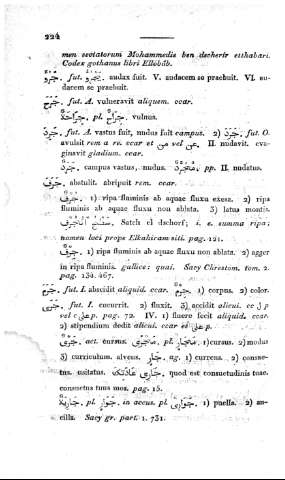 224
men sectatorum Mohammedis ben dscherir etthabari.
Codex gothanus libri Ellobâb.
جَرُؤَ. fut. يَجْرُؤُ. audax fuit. V. audacem se praebuit. VI. au-
dacem se praebuit.
جَرَحَ. fut. A. vulneravit aliquem. ccar.
جِرَاحَةٌ. pl. جِرَاحٌ. vulnus.
جَرِدَ. fut. A. vastus fuit, nudus fuit campus. 2) جَرَدَ. fut. O.
avulsit rem a re. ccar et من vel عن. II. nudavit. eva-
ginavit gladium. ccar.
جَرَدٌ. campus vastus, nudus. مُجَرَّدٌ. pp. II. nudatus.
جَرَفَ. abstulit. abripuit rem. ccar.
جُرْفٌ. 1) ripa fluminis ab aquae fluxu exesa. 2) ripa
fluminis ab aquae fluxu non ablata. 3) latus montis.
سَطْحُ الْجُرْفِ. Satch el dschorf; i. e. summa ripa;
nomen loci prope Elkahiram siti. pag. 121.
جُرُفٌ. 1) ripa fluminis ab aquae fluxu non ablata. 2) agger
in ripa fluminis. gallice: quai. Sacy Chrestom. tom. 2.
pag. 130. 467.
جَرَمَ. fut. I. abscidit aliquid. ccar. جِرْمٌ. 1) corpus. 2) color.
جَرَى. fut. I. cucurrit. 2) fluxit. 3) accidit alicui. cc ل p
vel على p. pag. 72. IV. 1) fluere fecit aliquid. ccar.
2) stipendium dedit alicui. ccar et على p.
جَرْىٌ. act. cursus. مَجْرًى. pl. مَجَارٍ. 1) cursus. 2) modus
3) curriculum. alveus. جَارٍ. ag. 1) currens. 2) consue-
tus. usitatus. جَارِى عَادَتِكَ. quod est consuetudinis tuae.
consuetus tuus mos. pag. 15.
جَارِيَةٌ. pl. جَوَارٍ. in accus. pl. جَوَارِىَ. 1) puella. 2) an-
cilla. Sacy gr. part. 1. 731.